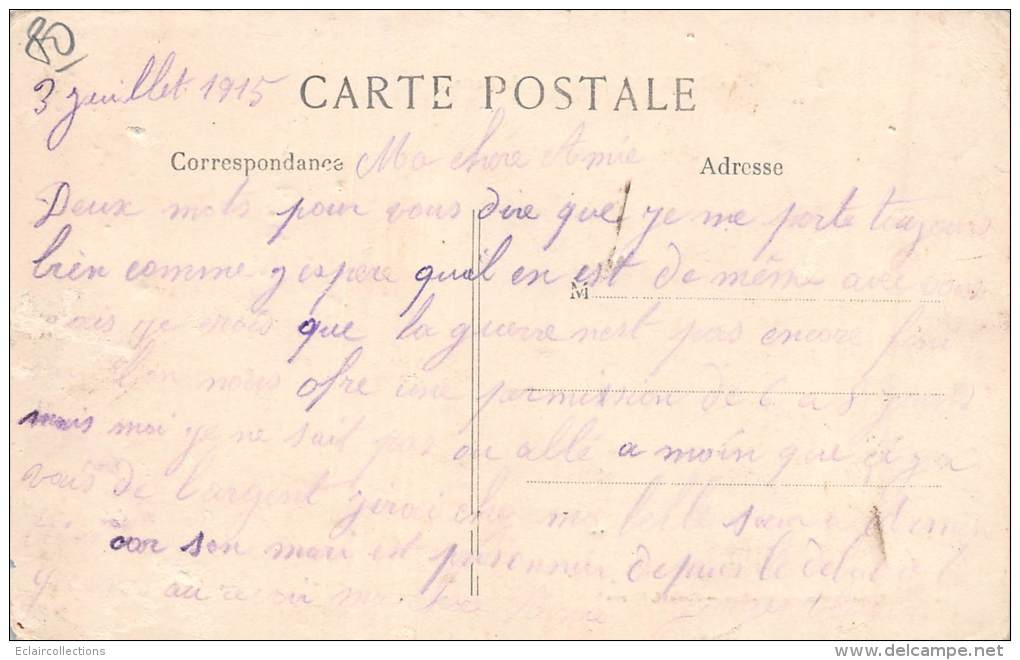 80
3 juillet 1915
CARTE POSTALE
Correspondance Ma chère Amie Adresse
Deux mots pour vous dire que je me porte toujours
bien comme j'espere quil en est de même avec vous
M
mais je crois que la guerre nest pas encore fini
lon nous ofre une permission de 6 a 8 jours
mais moi je ne sait pas ou allé a moin que si ja
vais de largent jirai chez ma belle sœur a
car son mari est prisonnier depuis le debut de l
au revoir ma chère Amie
Eclaircollections
delcampe.net